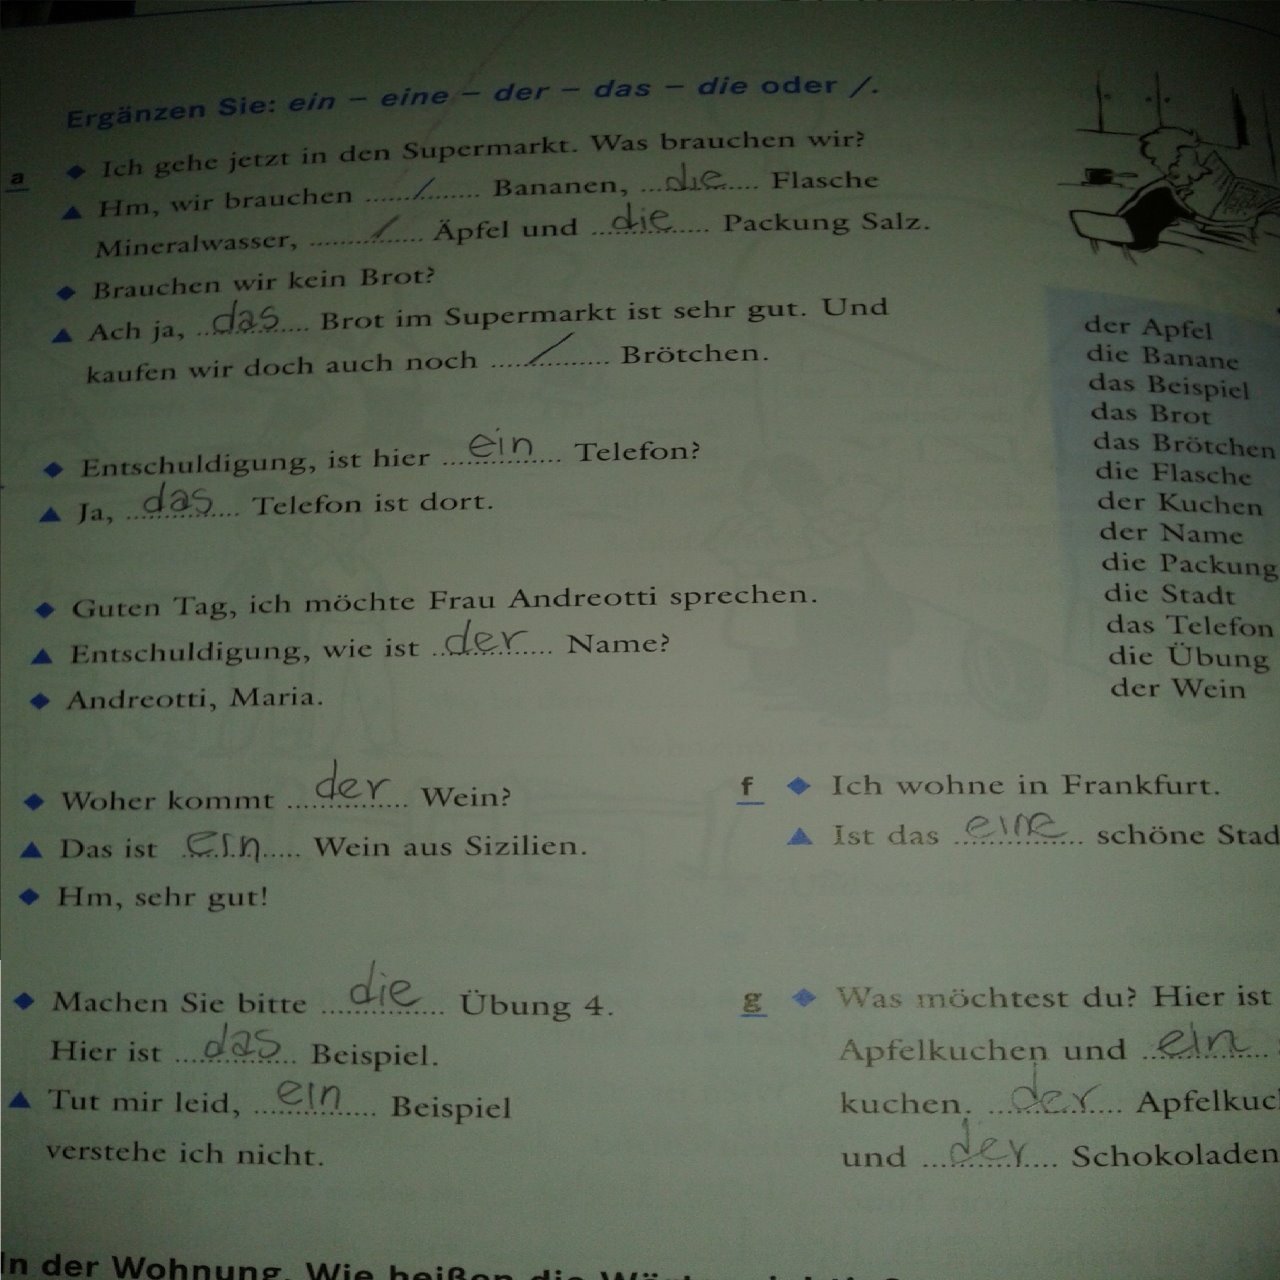 Ergänzen Sie: ein – eine – der – das – die oder /.
a ◆ Ich gehe jetzt in den Supermarkt. Was brauchen wir?
▲ Hm, wir brauchen ...../..... Bananen, ...die.... Flasche
Mineralwasser, ...../..... Äpfel und ...die.... Packung Salz.
◆ Brauchen wir kein Brot?
▲ Ach ja, ...das.... Brot im Supermarkt ist sehr gut. Und
kaufen wir doch auch noch ...../..... Brötchen.
◆ Entschuldigung, ist hier ...ein.... Telefon?
▲ Ja, ...das.... Telefon ist dort.
◆ Guten Tag, ich möchte Frau Andreotti sprechen.
▲ Entschuldigung, wie ist ...der.... Name?
◆ Andreotti, Maria.
◆ Woher kommt ...der.... Wein?
▲ Das ist ...ein.... Wein aus Sizilien.
◆ Hm, sehr gut!
◆ Machen Sie bitte ...die.... Übung 4.
Hier ist ...das.... Beispiel.
▲ Tut mir leid, ...ein.... Beispiel
verstehe ich nicht.
der Apfel
die Banane
das Beispiel
das Brot
das Brötchen
die Flasche
der Kuchen
der Name
die Packung
die Stadt
das Telefon
die Übung
der Wein
f ◆ Ich wohne in Frankfurt.
▲ Ist das ...eine.... schöne Stad
g ◆ Was möchtest du? Hier ist
Apfelkuchen und ...ein....
kuchen. ...der.... Apfelkuc
und ...der.... Schokoladen
In der Wohnung. Wie heißen die